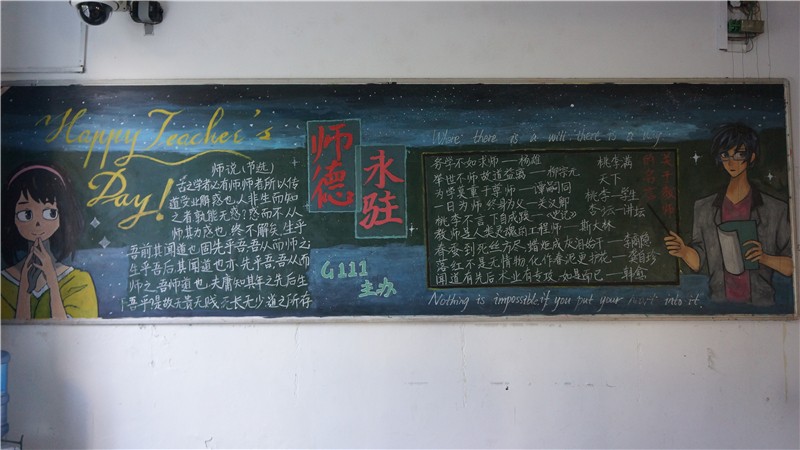 Happy Teacher's
Day!
师说(节选)
古之学者必有师师者所以传
道受业解惑也人非生而知
之者孰能无惑?惑而不从
师其为惑也终不解矣生乎
吾前其闻道也固先乎吾吾从而师之
生乎吾后其闻道也亦先乎吾吾从而
师之吾师道也夫庸知其年之先后生
于吾乎是故无贵无贱无长无少道之所存
师德
永驻
G111
主办
Where there is a will there is a way
务学不如求师——杨雄
举世不师故道益离——柳宗元
为学莫重于尊师——谭嗣同
一日为师终身为父——关汉卿
桃李不言下自成蹊——《史记》
教师是人类灵魂的工程师——斯大林
春蚕到死丝方尽蜡炬成灰泪始干——李商隐
落红不是无情物化作春泥更护花——龚自珍
闻道有先后术业有专攻如是而已——韩愈
桃李满
天下
桃李—学生
杏坛—讲坛
关于教师
Nothing is impossible if you put your mind into it.